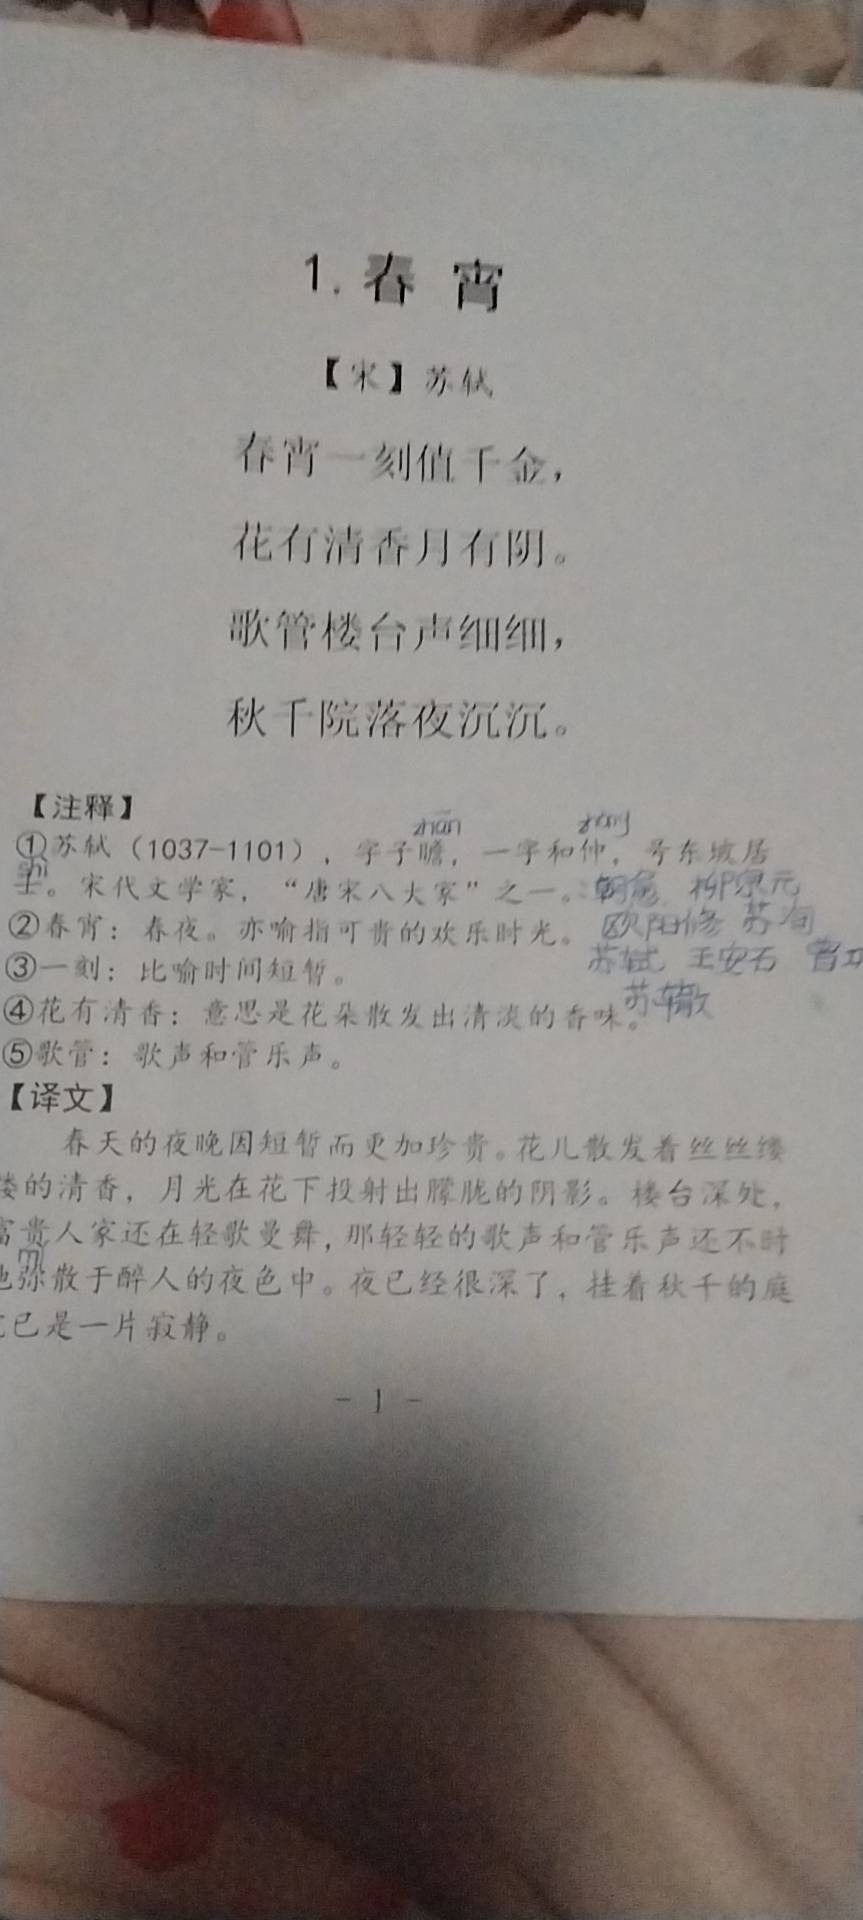 1. 春 宵
【宋】苏轼
春宵一刻值千金，
花有清香月有阴。
歌管楼台声细细，
秋千院落夜沉沉。
【注释】
zhān
①苏轼（1037-1101），字子瞻，一字和仲，号东坡居
shì
士。宋代文学家，“唐宋八大家”之一。 柳宗元
②春宵：春夜。亦喻指可贵的欢乐时光。 欧阳修 苏洵
③一刻：比喻时间短暂。 苏轼 王安石
④花有清香：意思是花朵散发出清淡的香味。 苏辙
⑤歌管：歌声和管乐声。
【译文】
春天的夜晚因短暂而更加珍贵。花儿散发着丝丝缕
缕的清香，月光在花下投射出朦胧的阴影。楼台深处，
富贵人家还在轻歌曼舞，那轻轻的歌声和管乐声还不时
mí
地弥散于醉人的夜色中。夜已经很深了，挂着秋千的庭
已是一片寂静。
- 1 -